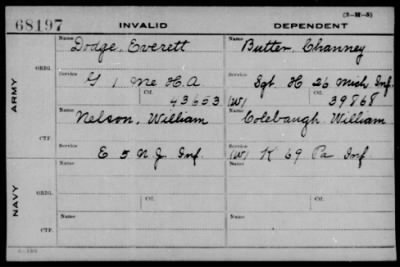 68197
INVALID
DEPENDENT
(3-M-3)
ARMY
ORIG.
Name
Dodge, Everett
Name
Butter, Channey
Service
G 1 Me H.A
Service
Sgt H 26 Mich Inf.
Ctf.
43653
Ctf.
(W) 39868
CTF.
Name
Nelson, William
Name
Colebaugh William
Service
E 5 N.J. Inf.
Service
(W) K 69 Pa Inf
NAVY
ORIG.
Name
Name
Service
Ctf.
Service
Ctf.
CTF.
Name
Name
Service
Service